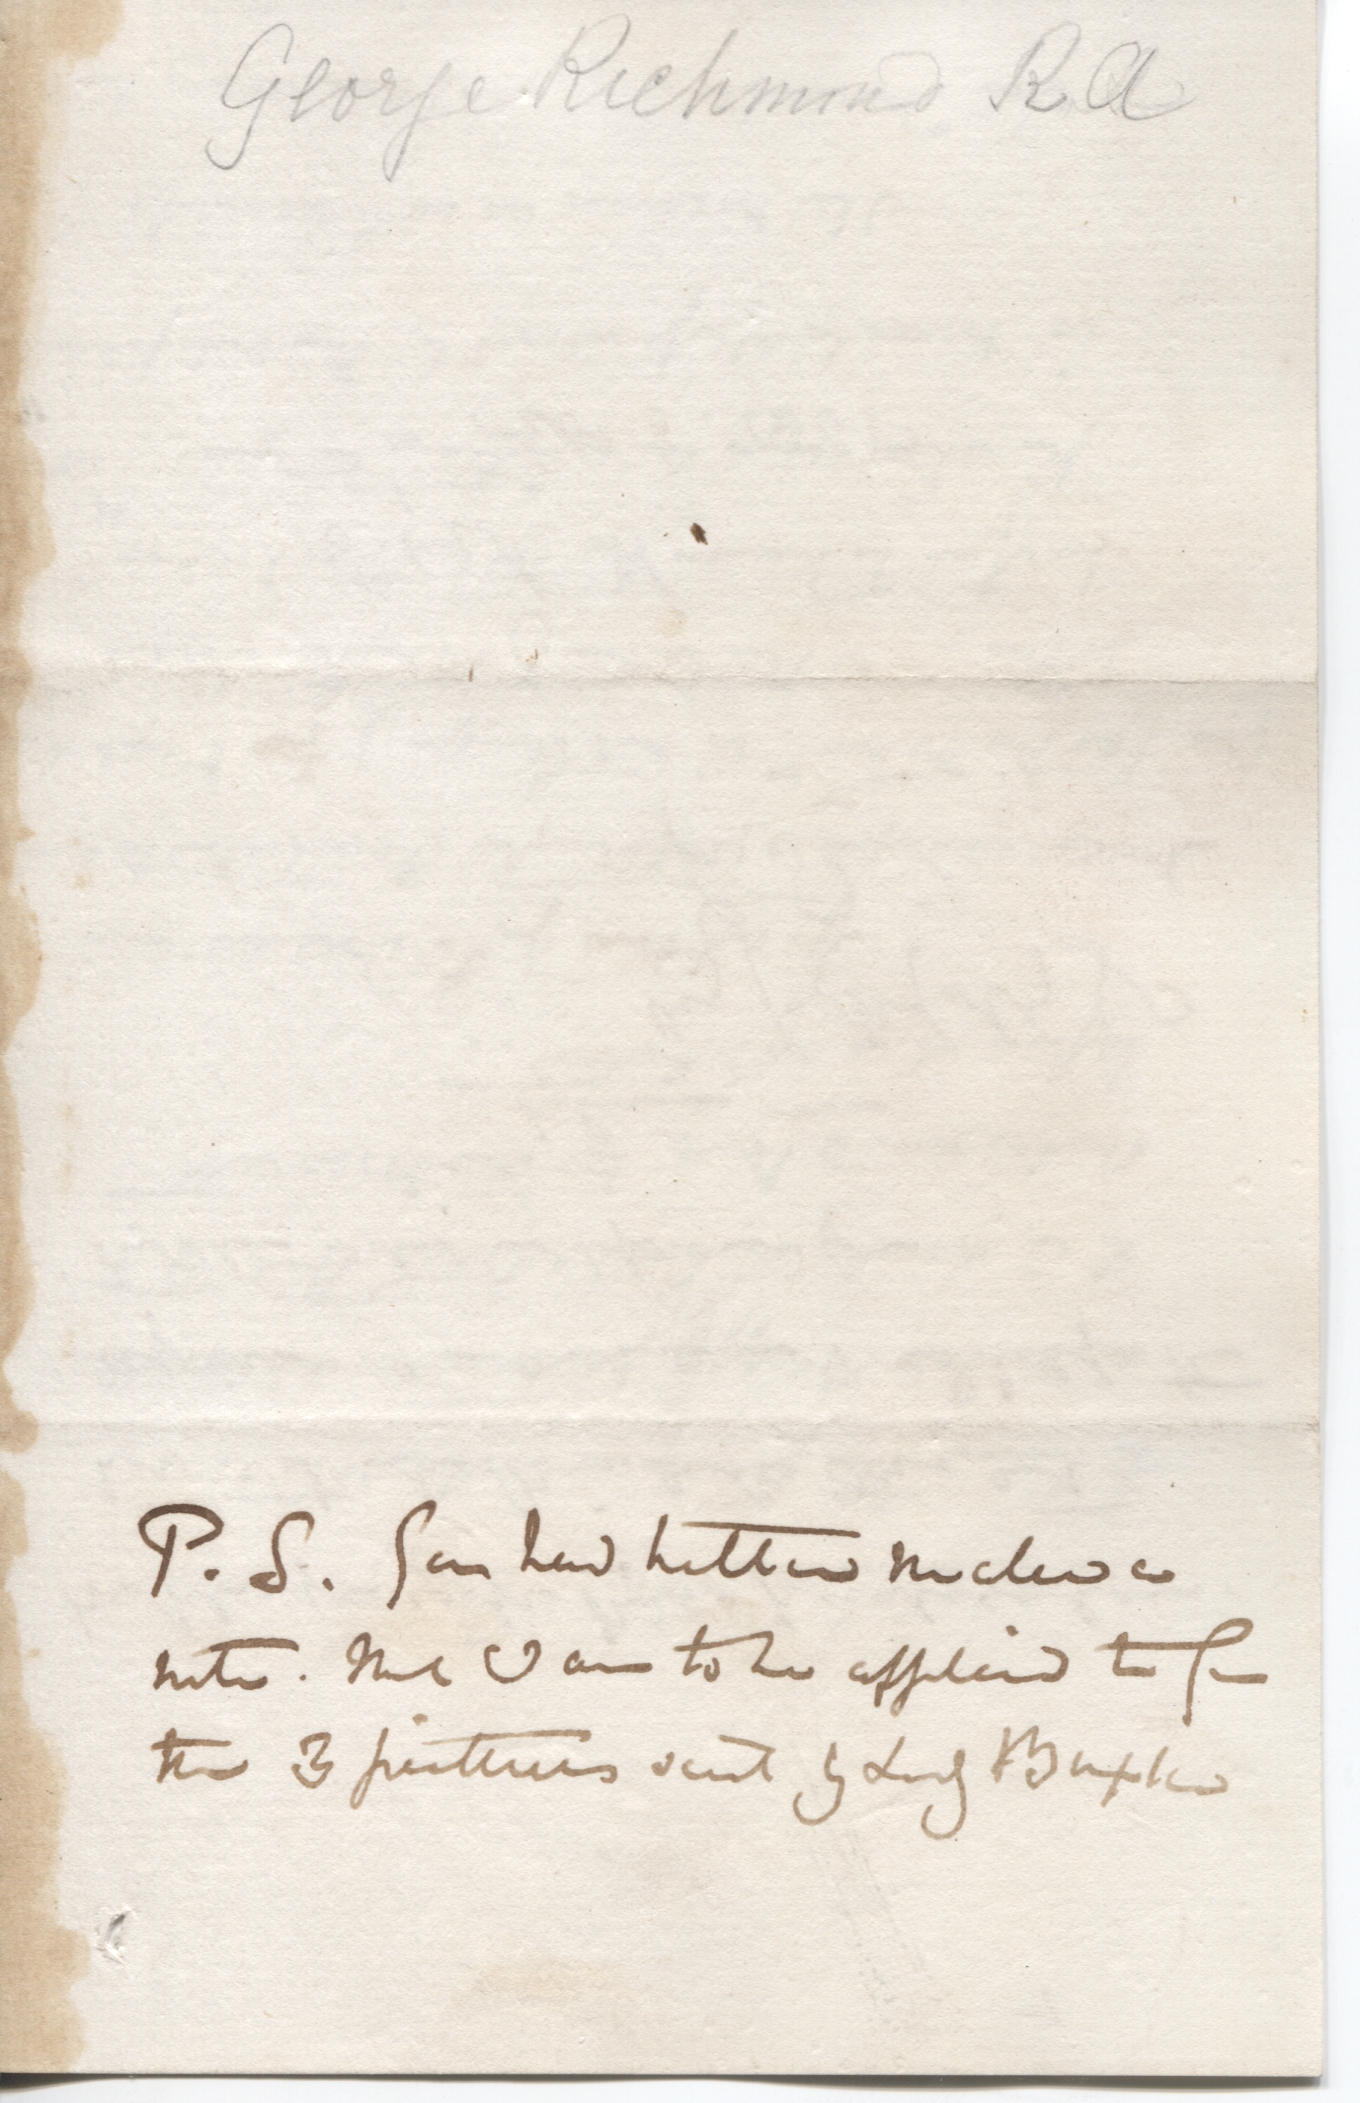 George Richmond RA
P.S. You had better make a
note. that I am to be applied to for
the 3 pictures sent by Lady